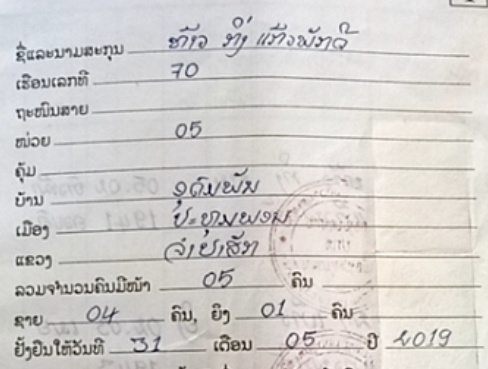 ຊື່ແລະນາມສະກຸນ ທ້າວ ກິ່ງ ແກ້ວພັກດີ
ເຮືອນເລກທີ 70
ຖະໜົນສາຍ
ໜ່ວຍ 05
ຄຸ້ມ
ບ້ານ ອຸດົມພັນ
ເມືອງ ປະທຸມພອນ
ແຂວງ ຈຳປາສັກ
ລວມຈຳນວນຄົນມີໜ້າ 05 ຄົນ
ຊາຍ 04 ຄົນ, ຍິງ 01 ຄົນ
ຢັ້ງຢືນໃຫ້ວັນທີ 31 ເດືອນ 05 ປີ 2019